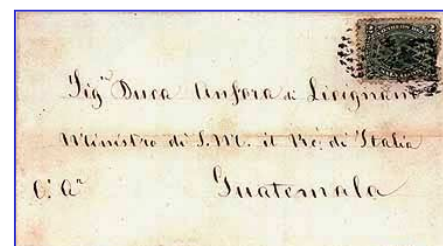 2 2
Sigr Duca Anfora di Licignano
Ministro di S. M. il Re di Italia
C. An Guatemala